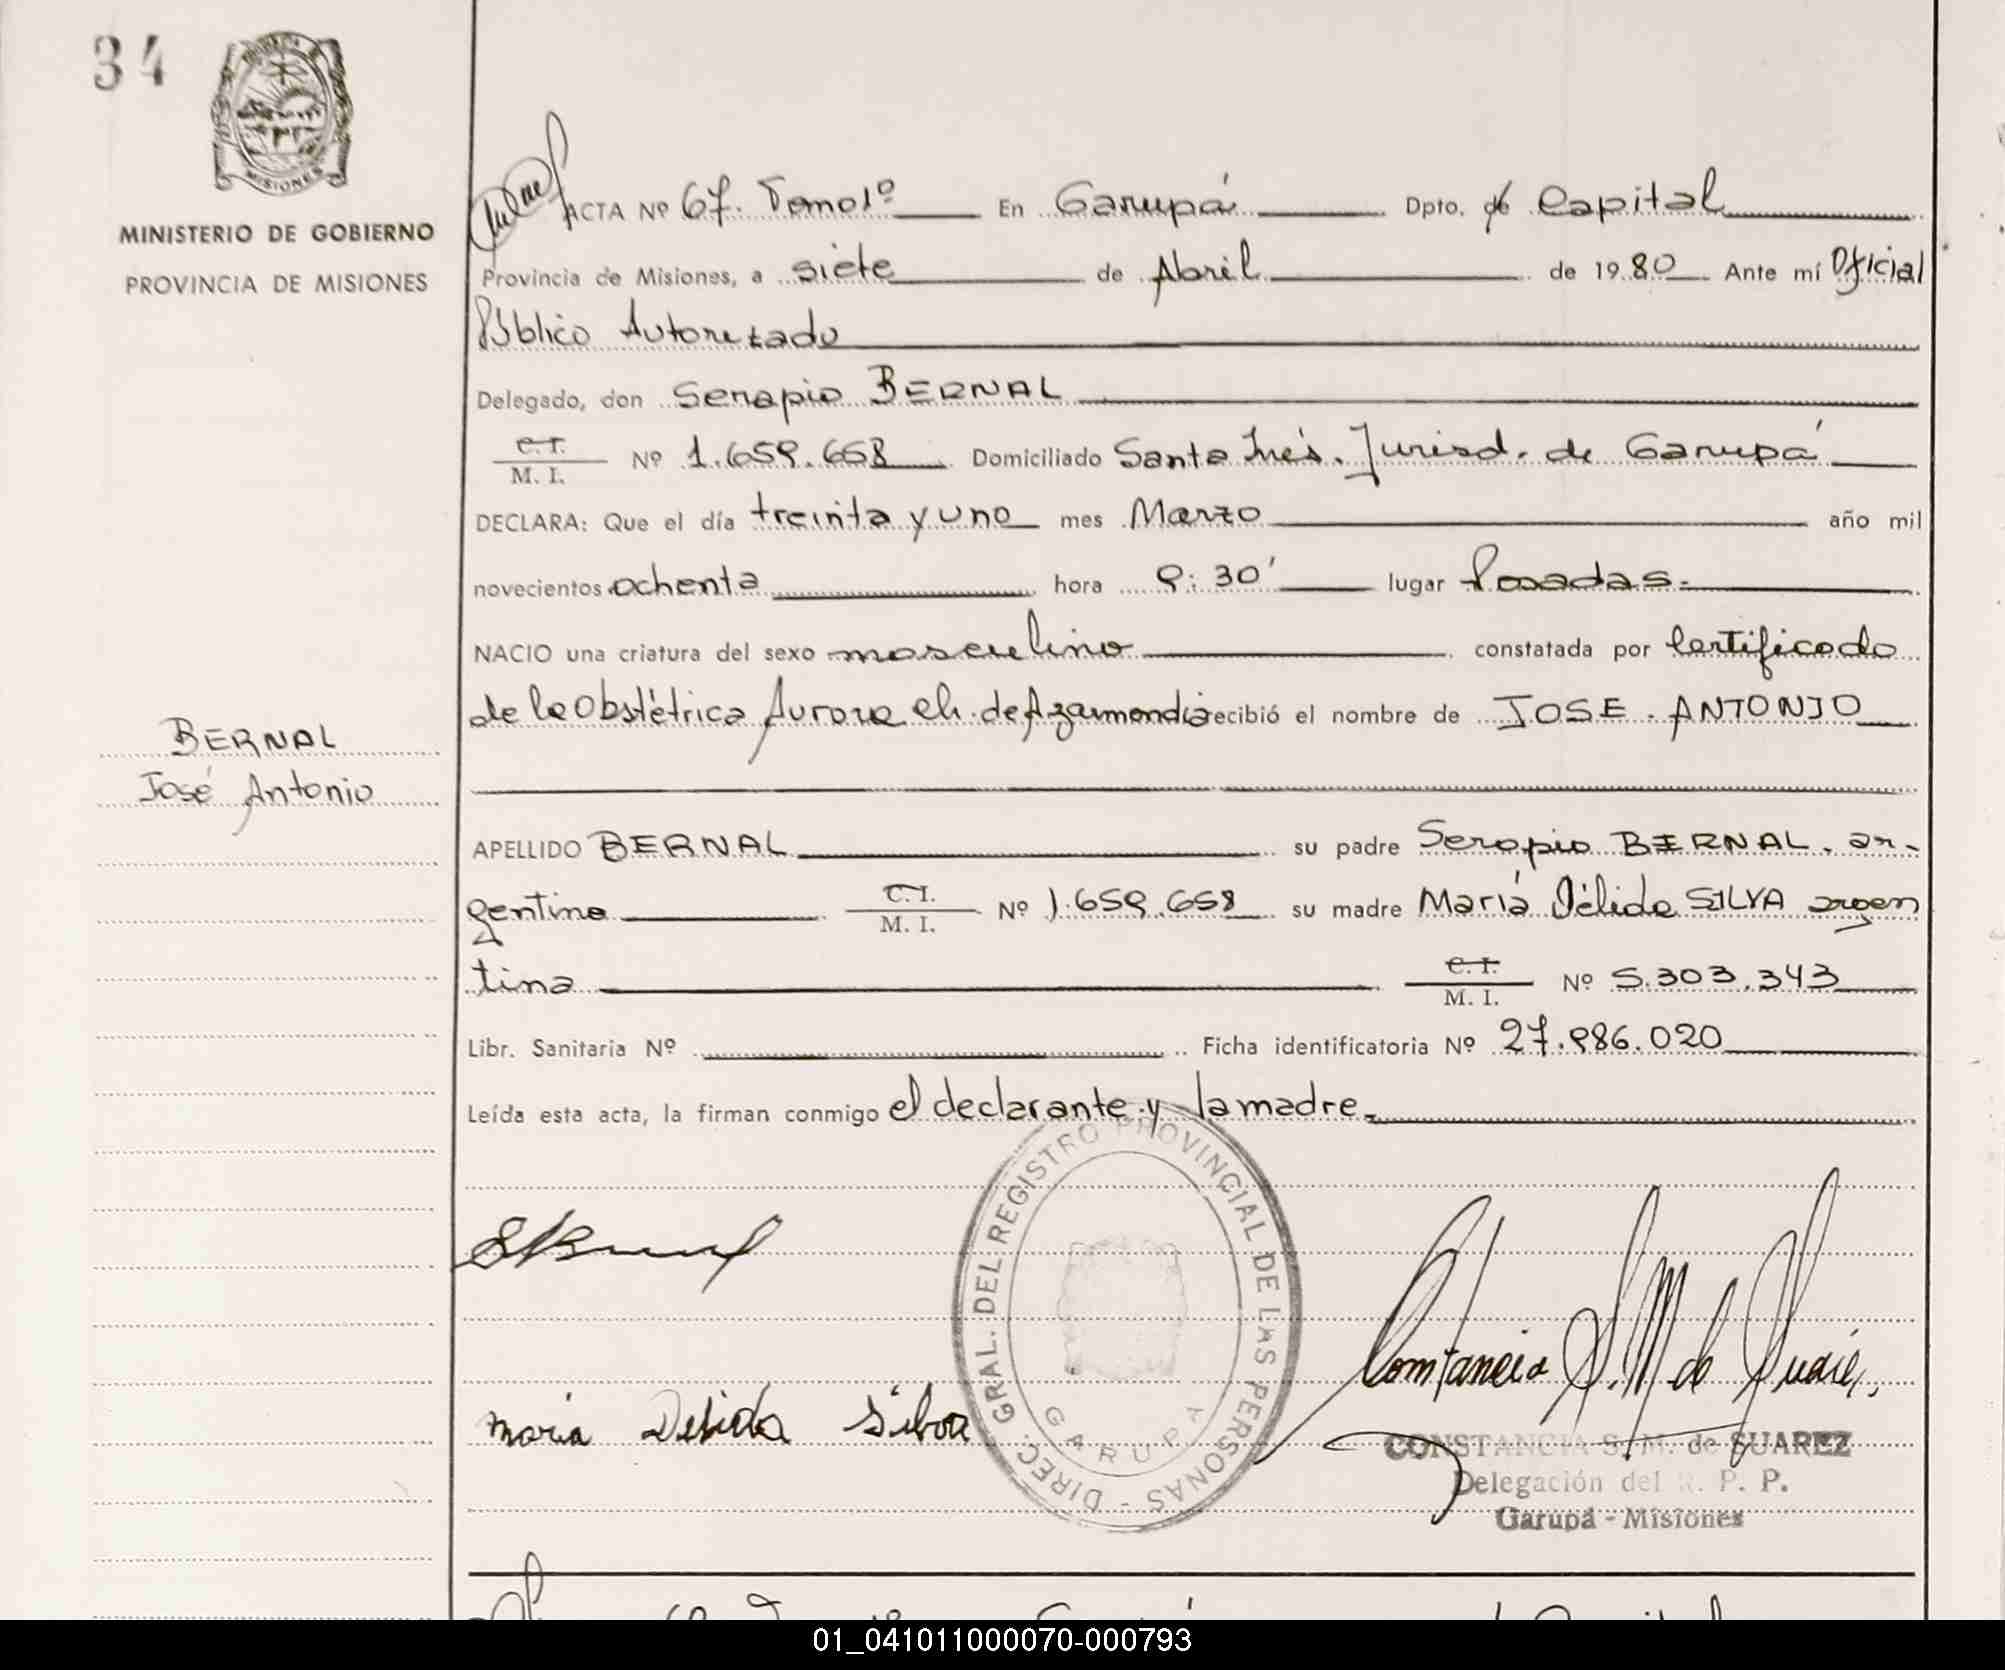 34
MISIONES
MINISTERIO DE GOBIERNO
PROVINCIA DE MISIONES
ACTA Nº 67. Tomo 1º En Garupá Dpto. de Capital
Provincia de Misiones, a siete de Abril de 1980 Ante mí Oficial
Público Autorizado
Delegado, don Serapio BERNAL
C.I.
M. I. Nº 1.659.658 Domiciliado Santa Inés. Jurisd. de Garupá
DECLARA: Que el día treinta y uno mes Marzo año mil
novecientos ochenta hora 9:30' lugar Posadas.
NACIO una criatura del sexo masculino constatada por Certificado
de la Obstétrica Aurora Ch. de Azarmendia recibió el nombre de JOSE. ANTONIO
BERNAL
José Antonio
APELLIDO BERNAL su padre Serapio BERNAL. ar-
gentino C.I.
M. I. Nº 1.659.658 su madre María Délida SILVA argen
tina C.I.
M. I. Nº 5.303.343
Libr. Sanitaria Nº Ficha identificatoria Nº 27.986.020
Leída esta acta, la firman conmigo el declarante y la madre.
DIREC. GRAL. DEL REGISTRO PROVINCIAL DE LAS PERSONAS -
GARUPA
Maria Delida Silva
Constancia S. M. de Suárez
CONSTANCIA S. M. de SUAREZ
Delegación del R. P. P.
Garupá - Misiones
01_041011000070-000793